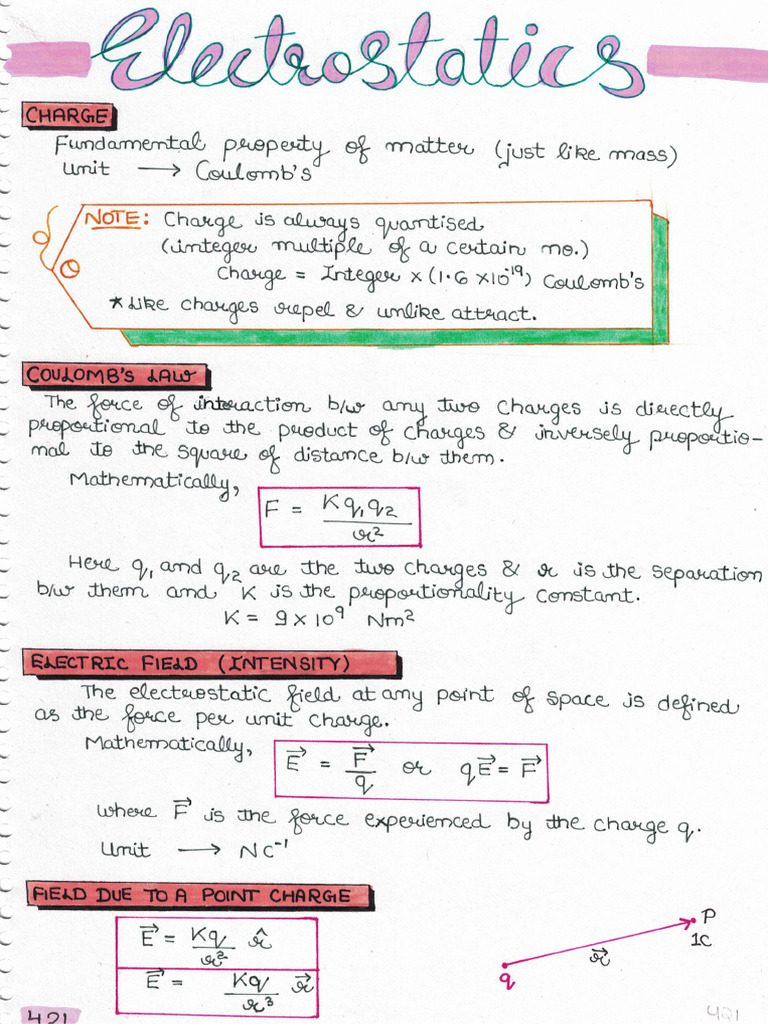 Electrostatics
CHARGE
Fundamental property of matter (just like mass)
Unit → Coulomb's
NOTE: Charge is always quantised
(integer multiple of a certain no.)
Charge = Integer × (1.6 × 10¹⁹) Coulomb's
*Like charges repel & unlike attract.
COULOMB'S LAW
The force of interaction b/w any two charges is directly
proportional to the product of charges & inversely proportio-
nal to the square of distance b/w them.
Mathematically,
F = Kq₁q₂/r²
Here q₁ and q₂ are the two charges & r is the separation
b/w them and K is the proportionality constant.
K = 9 × 10⁹ Nm²
ELECTRIC FIELD (INTENSITY)
The electrostatic field at any point of space is defined
as the force per unit charge.
Mathematically,
E⃗ = F⃗/q or qE⃗ = F⃗
where F⃗ is the force experienced by the charge q.
Unit → NC⁻¹
FIELD DUE TO A POINT CHARGE
E⃗ = Kq/r² r̂
E⃗ = Kq/r³ r⃗
P
1C
r⃗
q
421
421